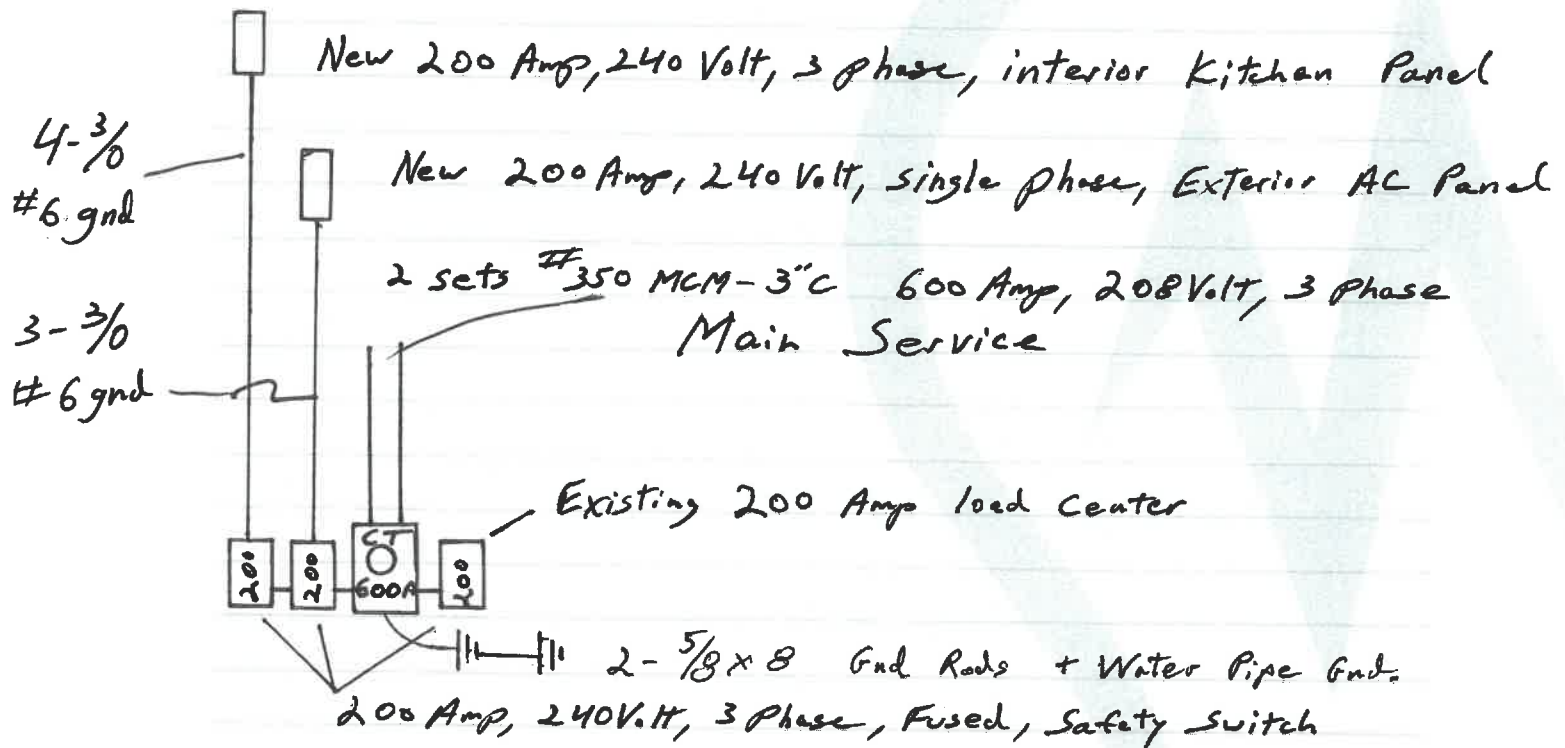 New 200 Amp, 240 Volt, 3 phase, interior Kitchen Panel
4-3/0
#6 gnd
New 200 Amp, 240 Volt, single phase, Exterior AC Panel
2 sets #350 MCM-3"C 600 Amp, 208 Volt, 3 phase
Main Service
3-3/0
#6 gnd
Existing 200 Amp load center
200
200
CT
600A
200
2-5/8x8 Gnd Rods + Water Pipe Gnd.
200 Amp, 240 Volt, 3 Phase, Fused, Safety Switch